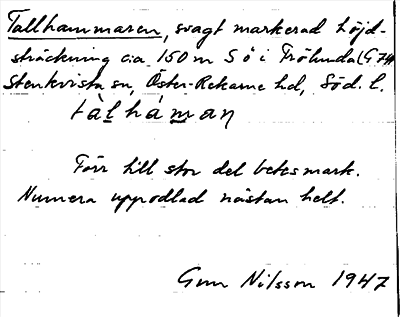 Tallhammaren, svagt markerad höjd-
sträckning c:a 150 m S ö i Frölunda (G 74)
Stenkvista sn, Öster-Rekarne hd, Söd. l.
tàlháman
Förr till stor del betesmark.
Numera uppodlad nästan helt.
Gun Nilsson 1947